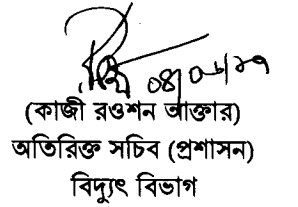 (কাজী রওশন আক্তার)
অতিরিক্ত সচিব (প্রশাসন)
বিদ্যুৎ বিভাগ